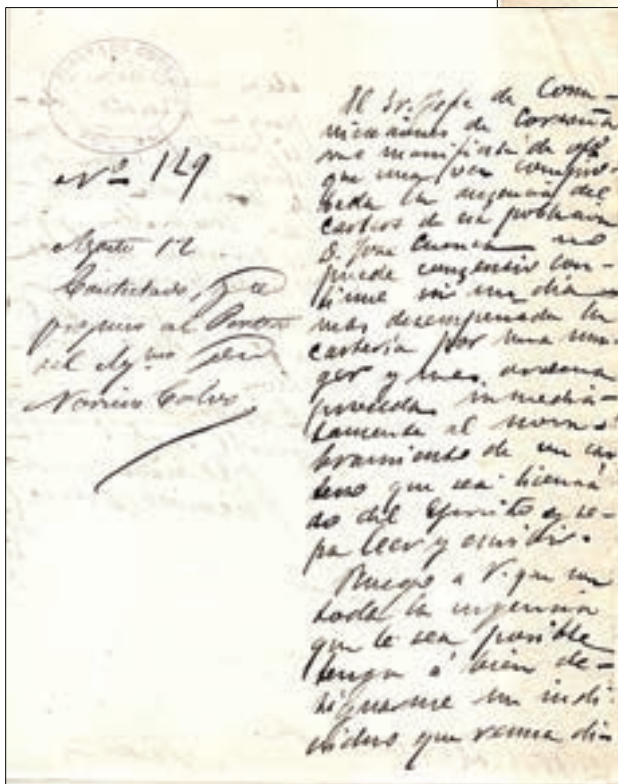 Nº 129
Agosto 12
Contestado, y se
propuso al
del Ayto
Narciso
El Sr. Jefe de Comu-
nicaciones de Coruña
me manifiesta de
que una vez compro-
bada la ausencia del
cartero de esa poblacion
D. Jose Cuenca no
puede consentir con-
tinue ni un dia
mas desempeñada la
carteria por una mu-
ger y me ordena
proceda inmedia-
tamente al nom-
bramiento de un car
tero que sea licencia
do del Ejercito y se-
pa leer y escribir.
Ruego a V. que con
toda la urgencia
que le sea posible
tenga á bien de-
signarme un indi-
viduo que reuna di-